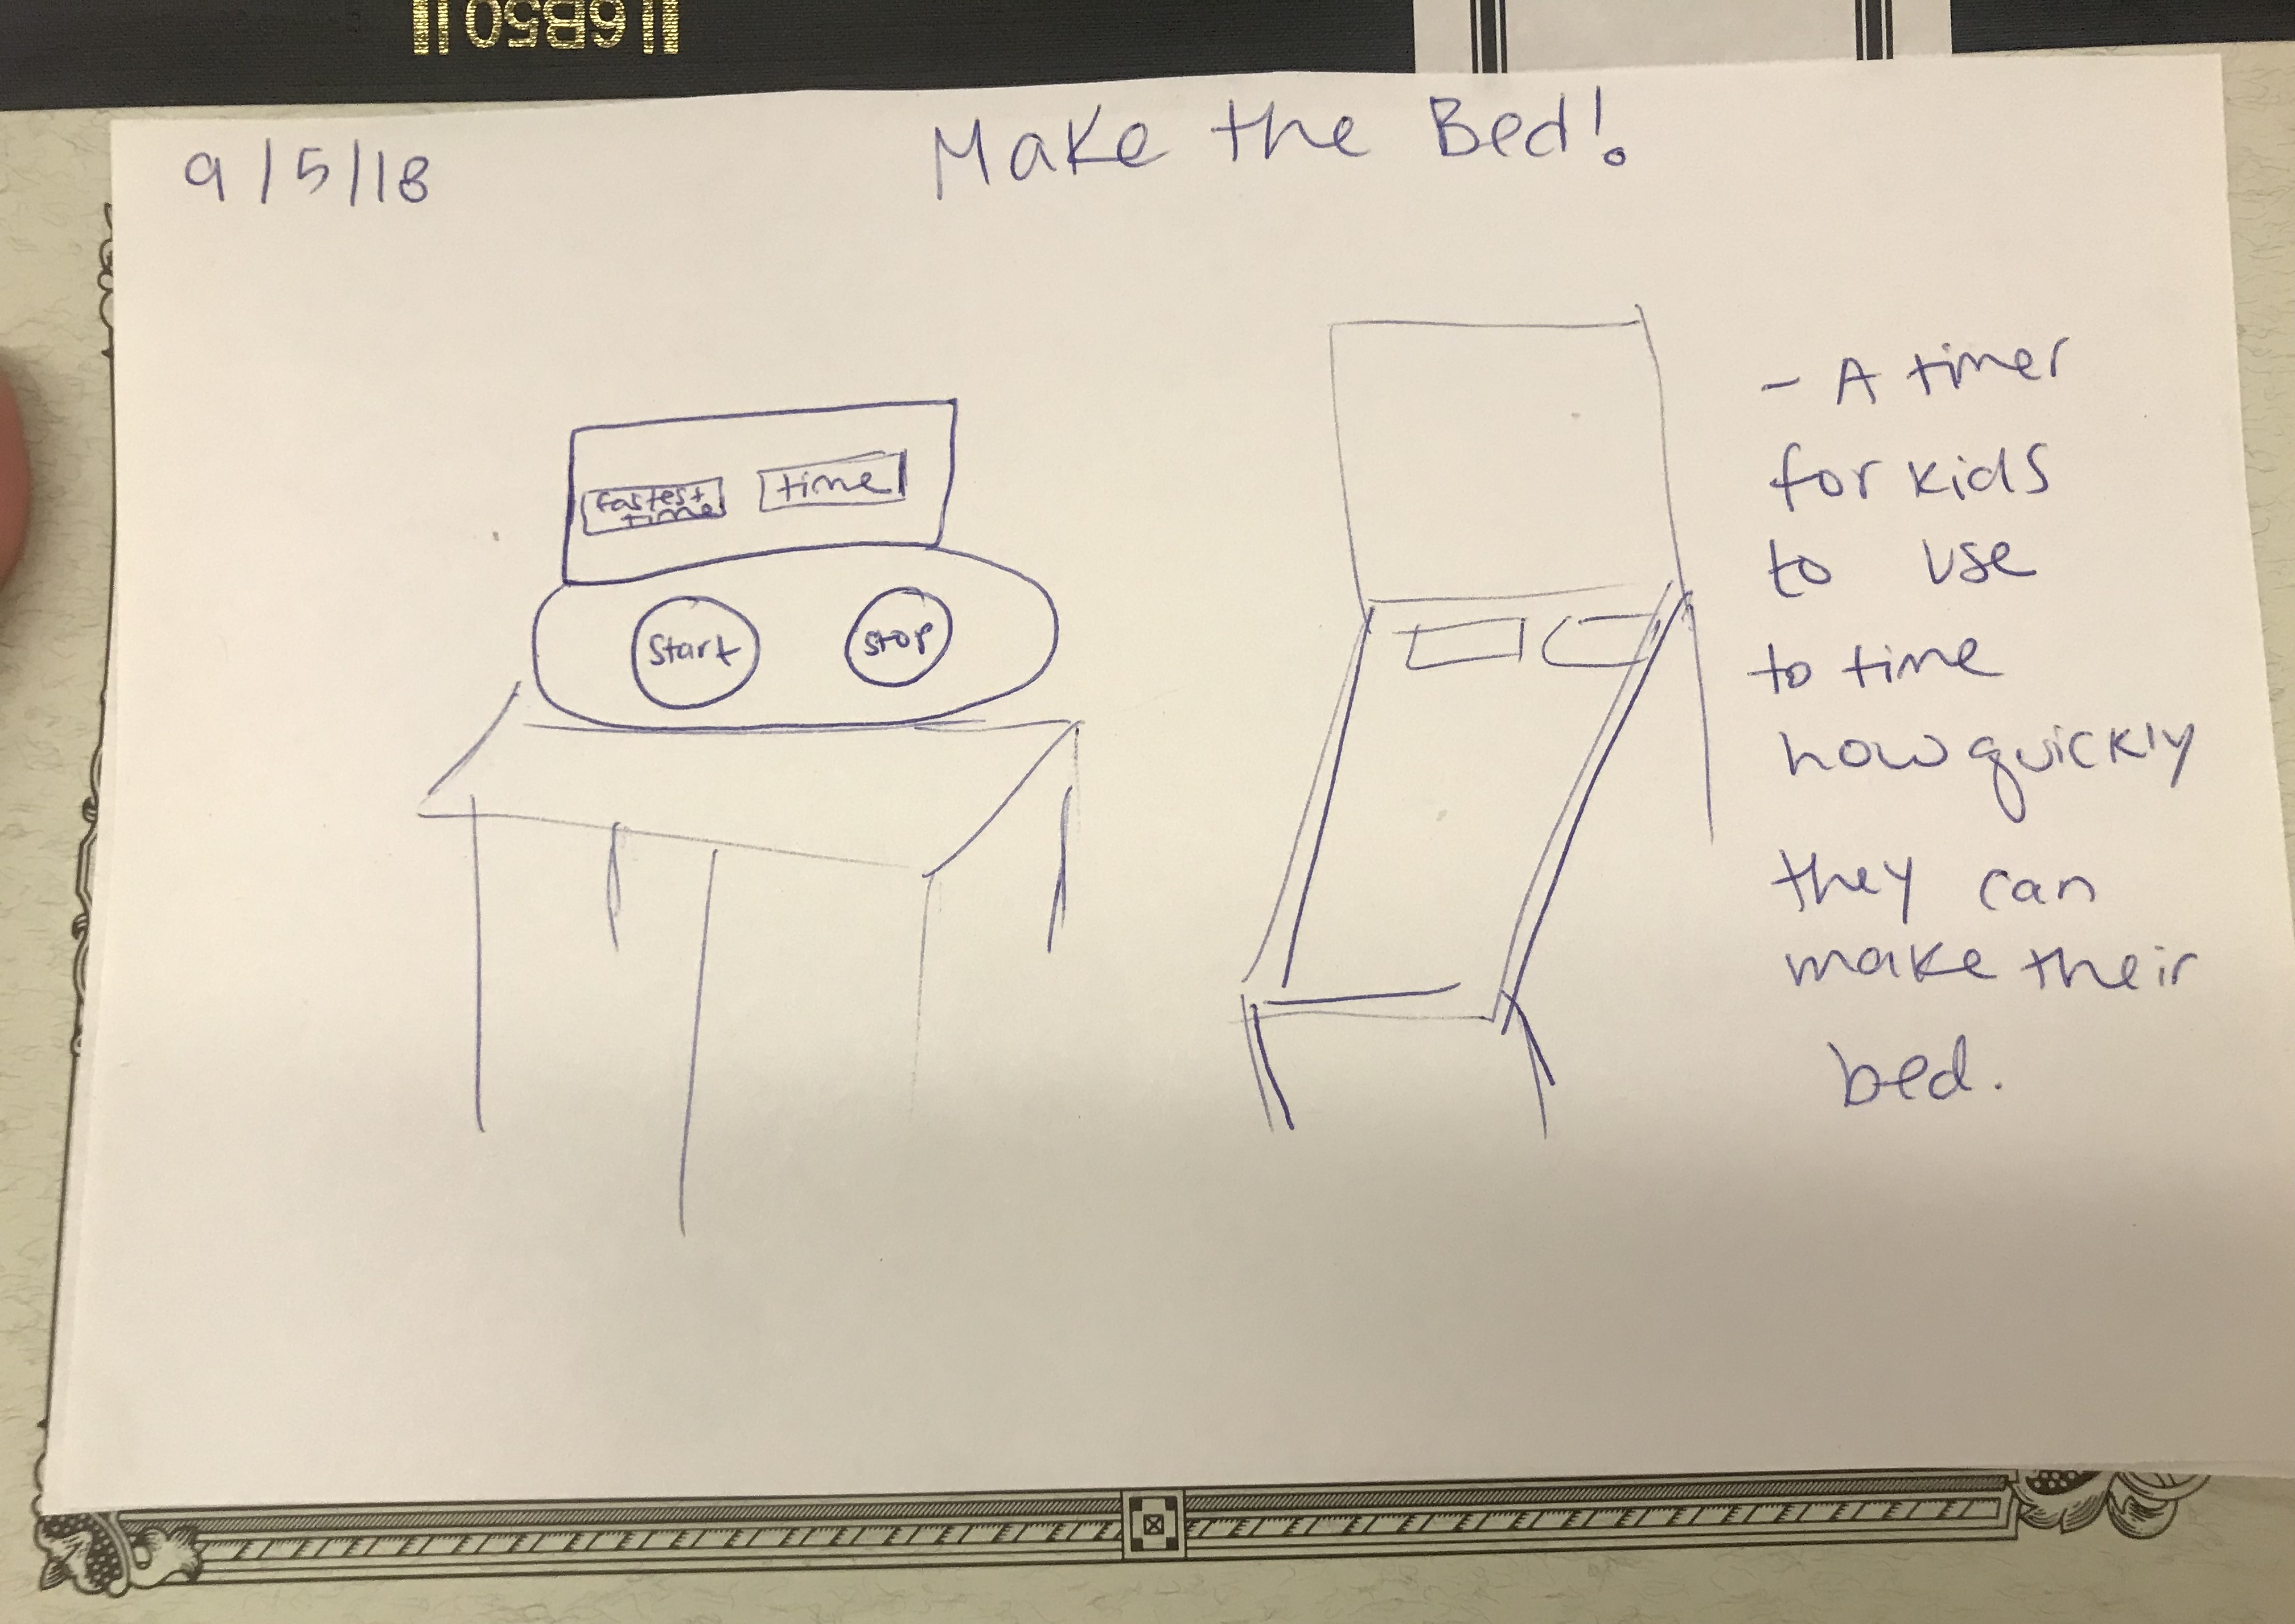 ||6B50||
9/5/18
Make the Bed!
fastest
time
time
Start
stop
- A timer
for kids
to use
to time
how quickly
they can
make their
bed.